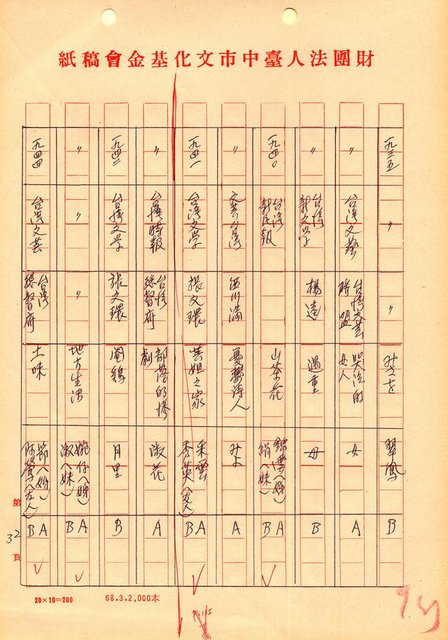 財團法人臺中市文化基金會稿紙
一九三五 〃 〃 みさを 翠鳳
〃 台灣文藝 台灣文藝聯盟 哭泣的女人 女 A
〃 台灣新文學 楊逵 過重 母 B
一九四〇 台灣新民報 山茶花 錦雲(姊) 娟(妹) A B
〃 文藝台灣 西川滿 憂鬱詩人 みよ A
一九四一 台灣文學 張文環 藝妲之家 采雲 秀英(友人) A B
〃 台灣時報 台灣總督府 都會的慘劇 淑花 A
一九四二 台灣文學 張文環 閹鷄 月里 B
〃 〃 台灣 地方生活 婉仔(姊) 淑(妹) A B
一九四四 台灣文藝 總督府 土味 節(姊) 阿鶯(友人) A B
第 32 頁
20×10=200
68.3.2,000本